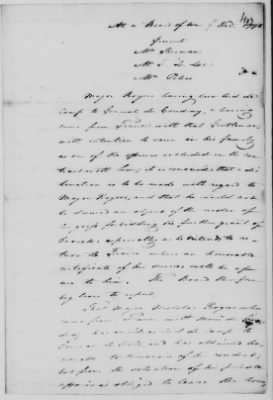 At a Board of War 9 Feb. 1778
Present
Mr Sherman
Mr F. L. Lee
Mr Peters
Major Rogers having been Aid de
Camp to General du Coudray, & having
come from France with that Gentleman
with intention to serve in his family
as one of the officers included in the con
tract with him, it is conceived that a dis
tinction is to be made with regard to
Major Rogers, and that he would not
be deemed an object of the resolve of
Congress forbidding the further grant of
Brevets especially as he intends to re
turn to France where an honorable
certificate of his services will be of use
to him. The Board therefore
beg leave to report
That Major Nicholas Rogers who
came from France with Monsr du Cou
dray has served as Aid de Camp to
General de Kalb, and has obtained hon
orable testimonies of his conduct; but
from the situation of his private
affairs is obliged to leave the